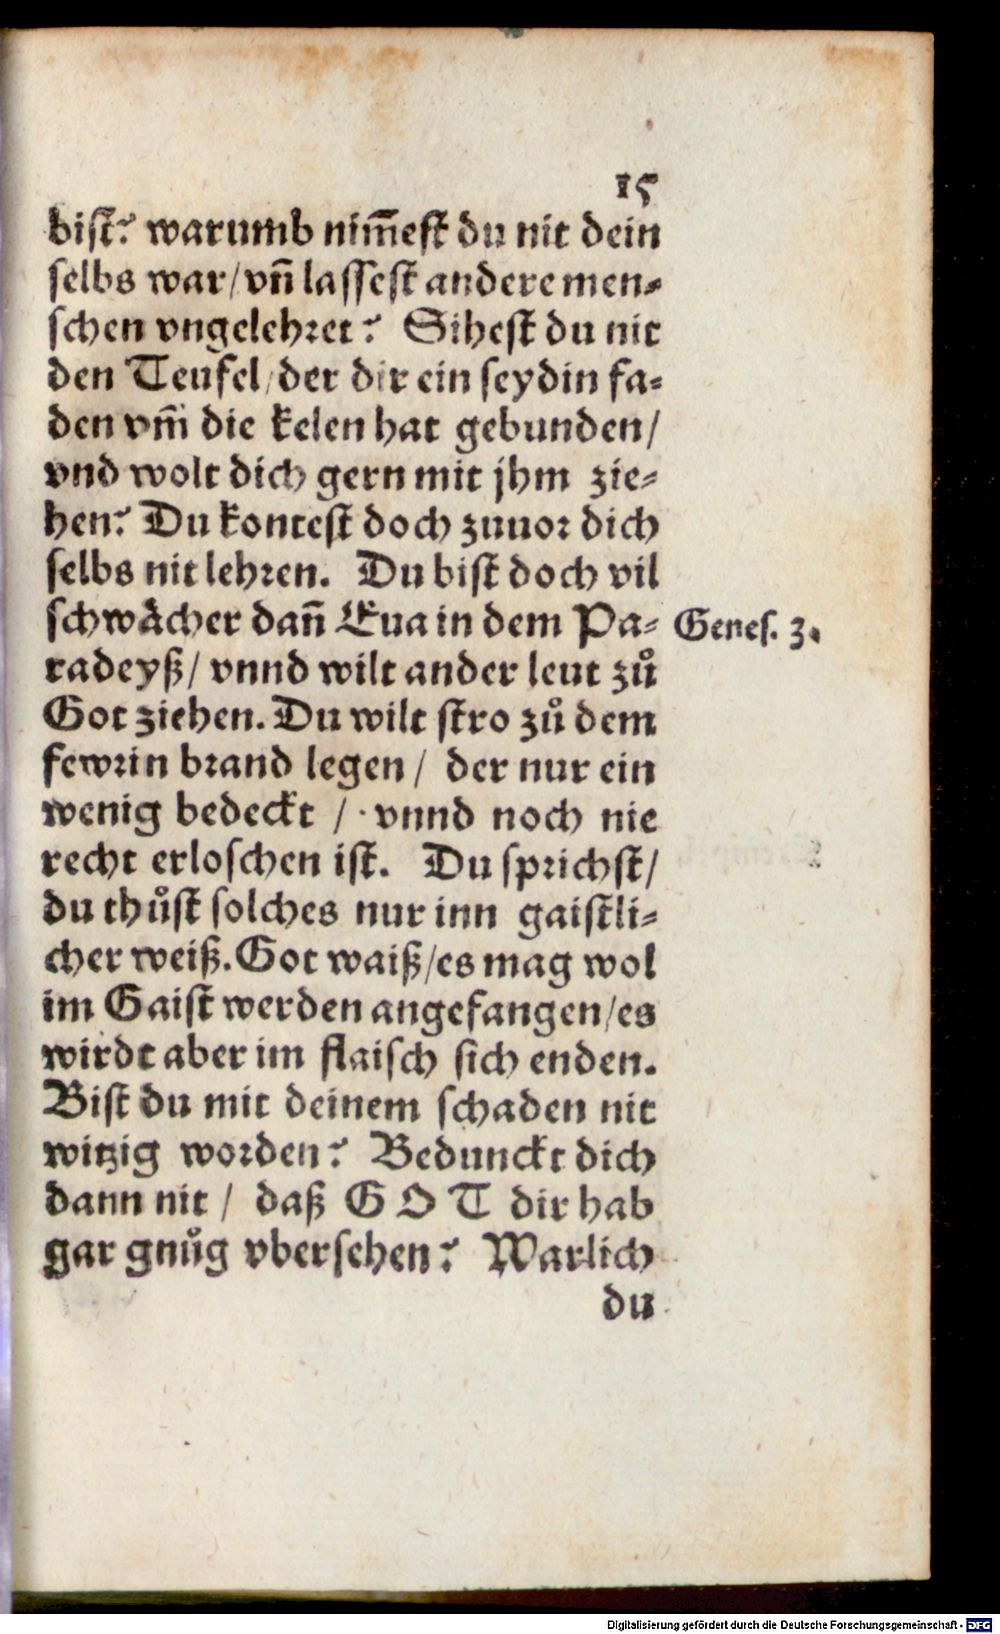 15
bist? warumb nim̃est du nit dein
selbs war/ vñ lassest andere men-
schen vngelehret? Sihest du nit
den Teufel/ der dir ein seydin fa-
den vm̃ die kelen hat gebunden/
vnd wolt dich gern mit jhm zie-
hen? Du kontest doch zuuor dich
selbs nit lehren. Du bist doch vil
schwächer dañ Eua in dem Pa-
Genes. 3.
radeyß/ vnnd wilt ander leut zů
Got ziehen. Du wilt stro zů dem
fewrin brand legen/ der nur ein
wenig bedeckt / vnnd noch nie
recht erloschen ist. Du sprichst/
du thůst solches nur inn gaistli-
cher weiß. Got waiß/ es mag wol
im Gaist werden angefangen/ es
wirdt aber im flaisch sich enden.
Bist du mit deinem schaden nit
witzig worden? Bedunckt dich
dann nit / daß GOT dir hab
gar gnůg vbersehen? Warlich
du
Digitalisierung gefördert durch die Deutsche Forschungsgemeinschaft - DFG